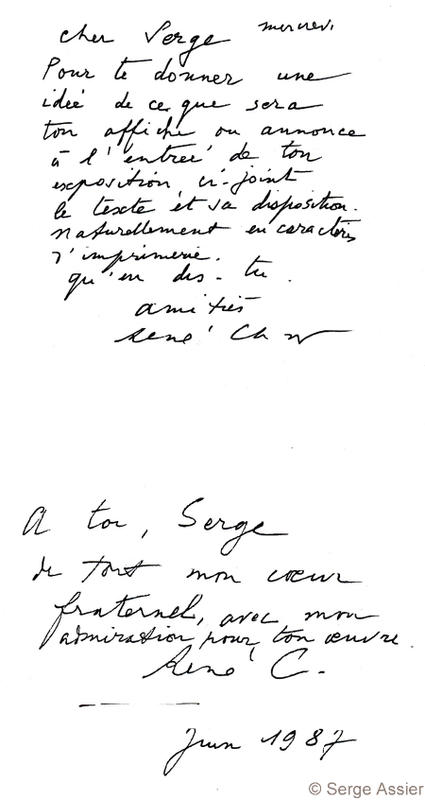 mercredi
cher Serge
Pour te donner une
idée de ce que sera
ton affiche ou annonce
à l'entrée de ton
exposition, ci-joint
le texte et sa disposition.
naturellement en caractères
d'imprimerie.
qu'en dis-tu.
amitiés
René Char
A toi, Serge
de tout mon coeur
fraternel, avec mon
admiration pour ton œuvre.
René C.
Juin 1987
© Serge Assier